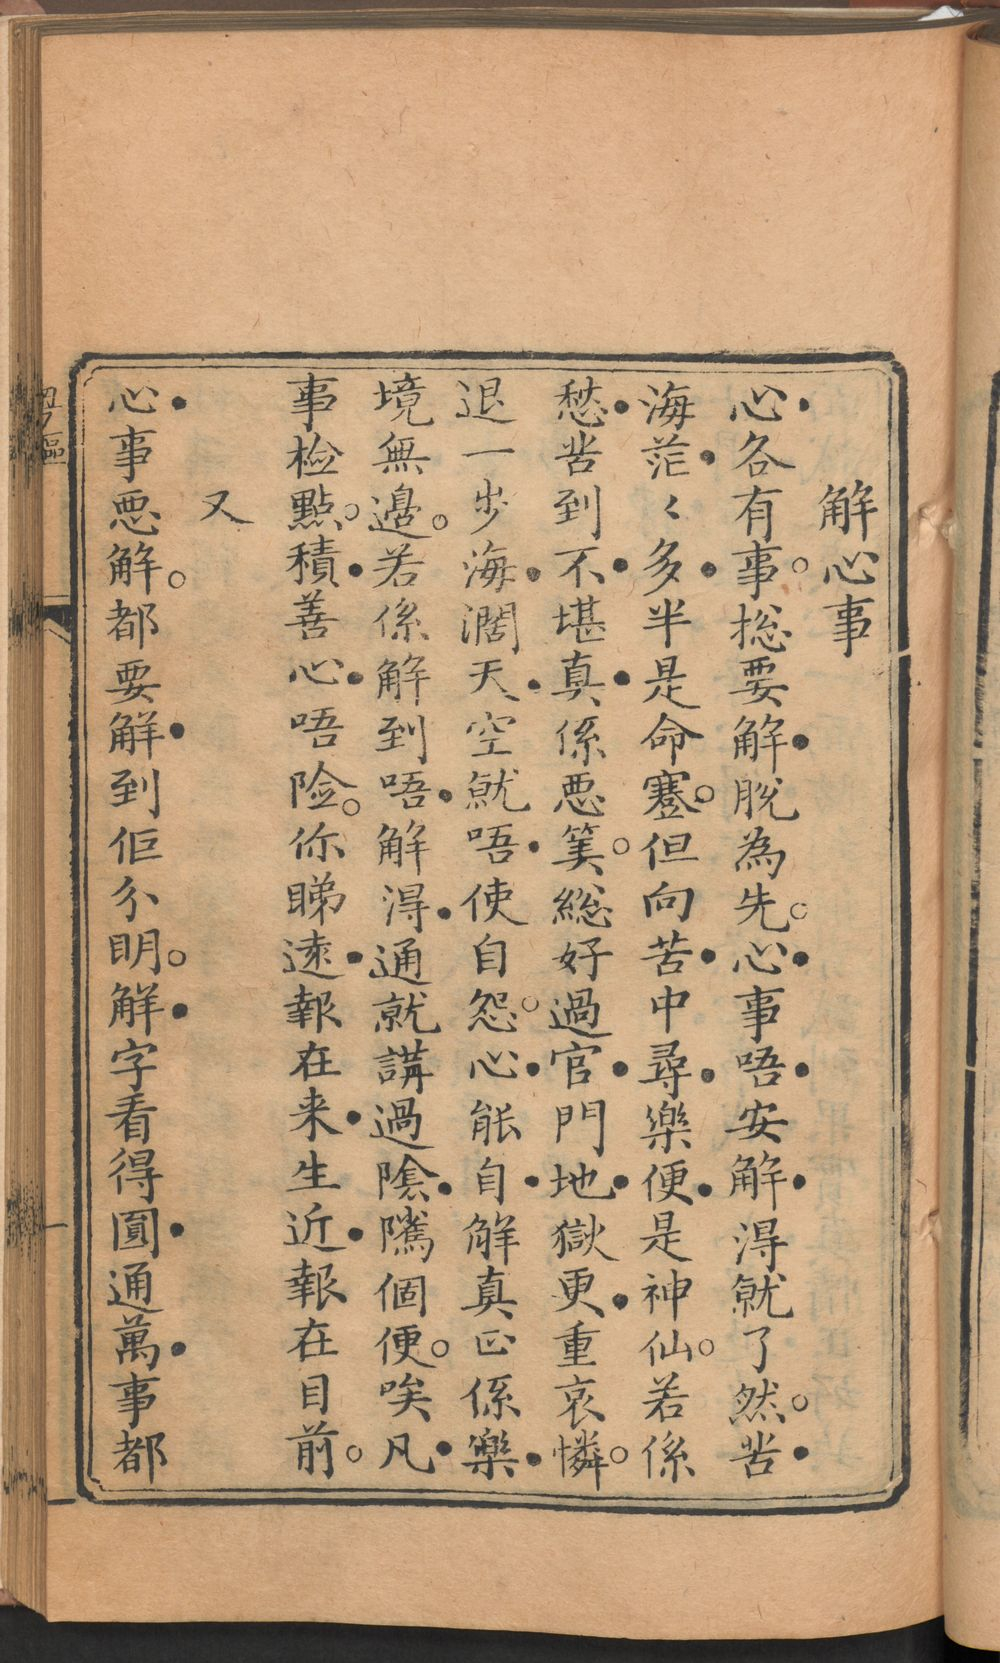 解心事
心各有事。揔要解脫為先。心事唔安解得就了然。苦
海茫〻多半是命蹇。但向苦中尋樂便是神仙。若係
愁苦到不堪真係惡筭。總好過官門地獄更重哀憐。
退一步海濶天空就唔使自怨。心能自解真正係樂
境無邊。若係解到唔解得通就講過隂隲個便。唉凡
事檢點。積善心唔險。你睇遠報在来生近報在目前。
又
心事惡解。都要解到佢分明。解字看得圓通萬事都